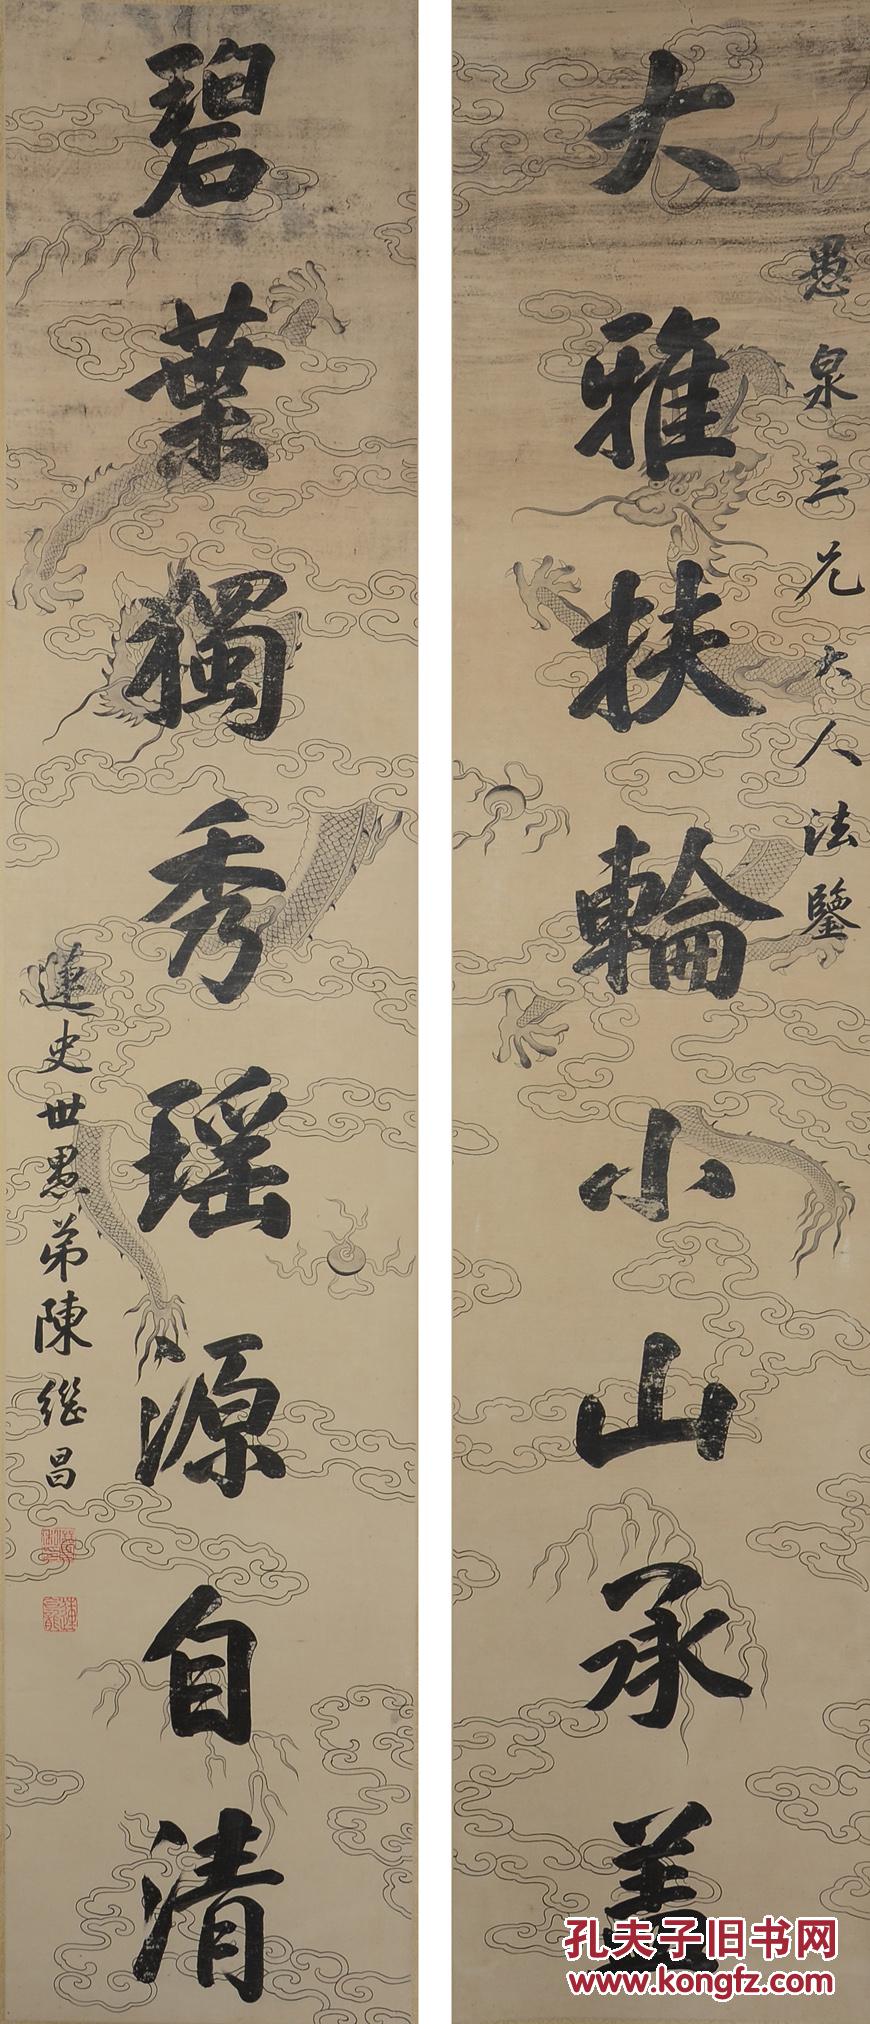 大雅扶輪小山承蓋
愚泉三兄大人法鑒
碧葉獨秀瑶源自清
蓮史世愚弟陳繼昌
孔夫子旧书网
www.kongfz.com